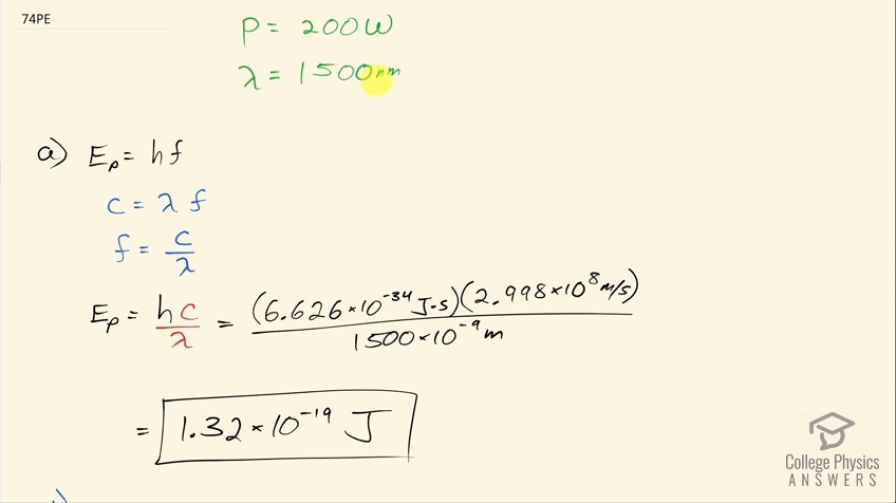 74PE
P = 200W
λ = 1500nm
a) Eₚ = hf
c = λ f
f = c/λ
Eₚ = hc/λ = (6.626×10⁻³⁴ J·s)(2.998×10⁸ m/s)/1500×10⁻⁹ m
= 1.32×10⁻¹⁹ J
College Physics
ANSWERS